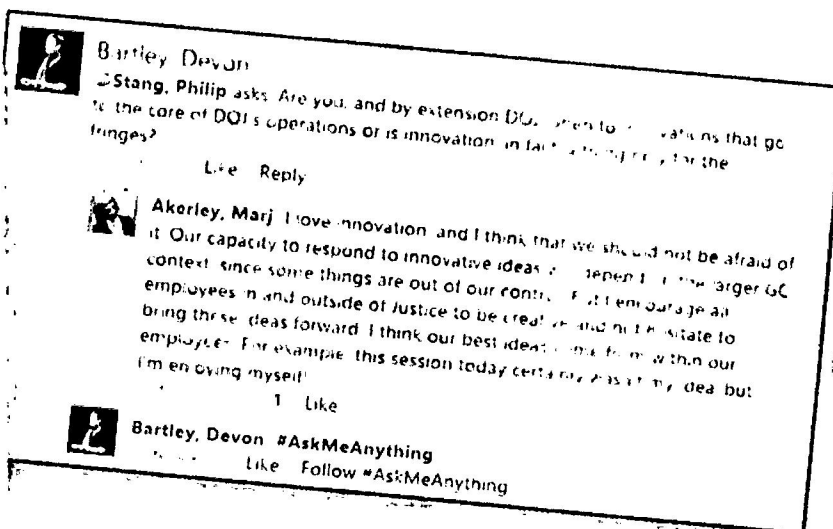 Bartley, Devon
@Stang, Philip asks: Are you, and by extension DOJ, open to innovations that go
to the core of DOJ's operations or is innovation in fact a thing only for the
fringes?
Like Reply
Akerley, Marj I love innovation and I think that we should not be afraid of
it. Our capacity to respond to innovative ideas depend the larger GC
context, since some things are out of our control. But I encourage all
employees in and outside of Justice to be creative and not hesitate to
bring these ideas forward. I think our best ideas come from within our
employees. For example, this session today certainly wasn't my idea but
I'm enjoying myself!
1 Like
Bartley, Devon #AskMeAnything
Like Follow #AskMeAnything